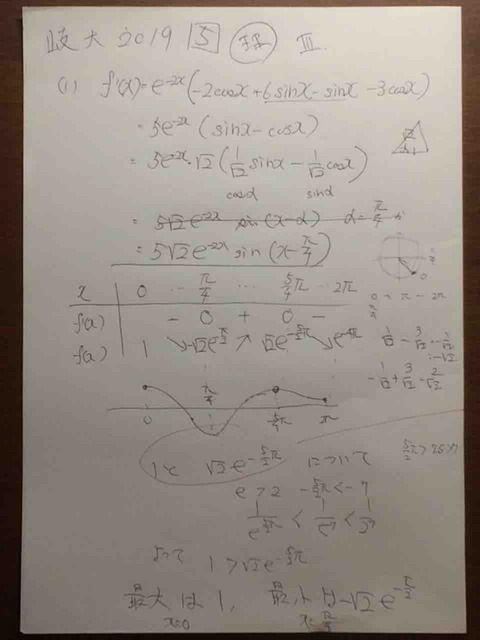 岐大 2019 5 理 Ⅲ.
(1) f'(x)=e^{-2x}(-2cosx+6sinx-sinx-3cosx)
=5e^{-2x}(sinx-cosx)
=5e^{-2x}·√2(1/√2 sinx-1/√2 cosx)
cosα sinα
=5√2e^{-2x} sin(x-α) α=π/4
=5√2e^{-2x} sin(x-π/4)
x 0 … π/4 … 5/4π … 2π
f'(x) - 0 + 0 -
f(x) 1 ↘ -√2e^{-π/2} ↗ √2e^{-5/2π} ↘ e^{-4π}
π/4
0 5/4π π
1と √2e^{-5/2π} について
e>2 -5/2π<-7
よって 1>√2e^{-5/2π}
最大は1, 最小は-√2e^{-π/2}
x=0